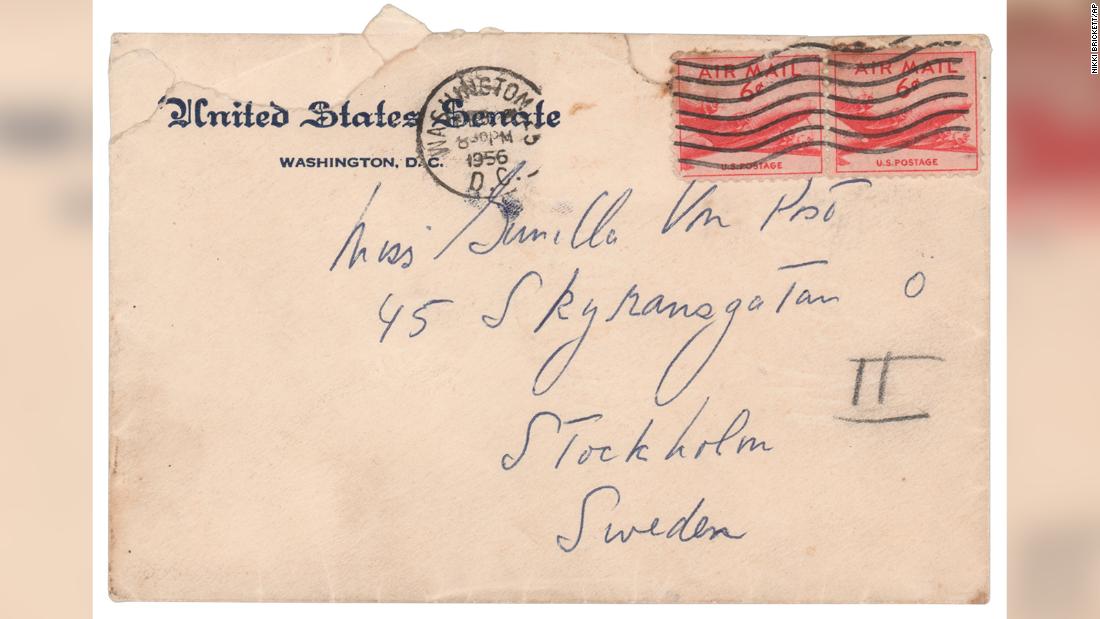 United States Senate
WASHINGTON, D. C.
WASHINGTON
8 30 PM
1956
D. C.
AIR MAIL
6¢
U.S. POSTAGE
AIR MAIL
6¢
U.S. POSTAGE
Miss Gunilla Von Post
45 Skyransgatan O
II
Stockholm
Sweden
NIKKI BRICKETT/AP